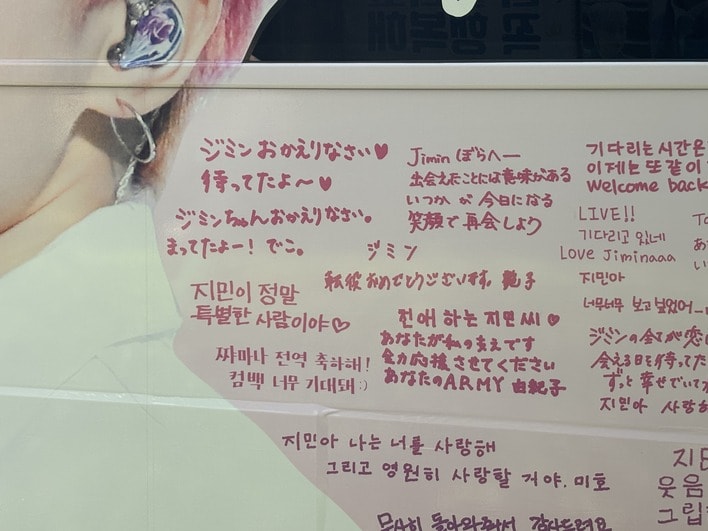 ジミン おかえりなさい♥
待ってたよ〜♥
ジミンちゃんおかえりなさい。
まってたよー! でこ。
Jimin ぼらへー
出会えたことには意味がある
いつか が 今日になる
笑顔で再会しよう
기다리는 시간은
이제는 또 같이
Welcome back
LIVE!!
기다리고 있네
Love Jiminaaa
지민아
너무너무 보고싶었어
ジミン
転役おめでとうございます。 艶子
지민이 정말
특별한 사람이야♡
쨔마나 전역 축하해!
컴백 너무 기대돼 :)
친애 하는 지민 씨♥
あなたが私のまえです
全力応援させてください
あなたのARMY 由紀子
ジミンの全てが恋
会える日を待ってた
ずっと幸せでいて
지민아 사랑
지민아 나는 너를 사랑해
그리고 영원히 사랑할 거야. 미호
무사히 돌아와줘서 감사드려요
웃음
그립